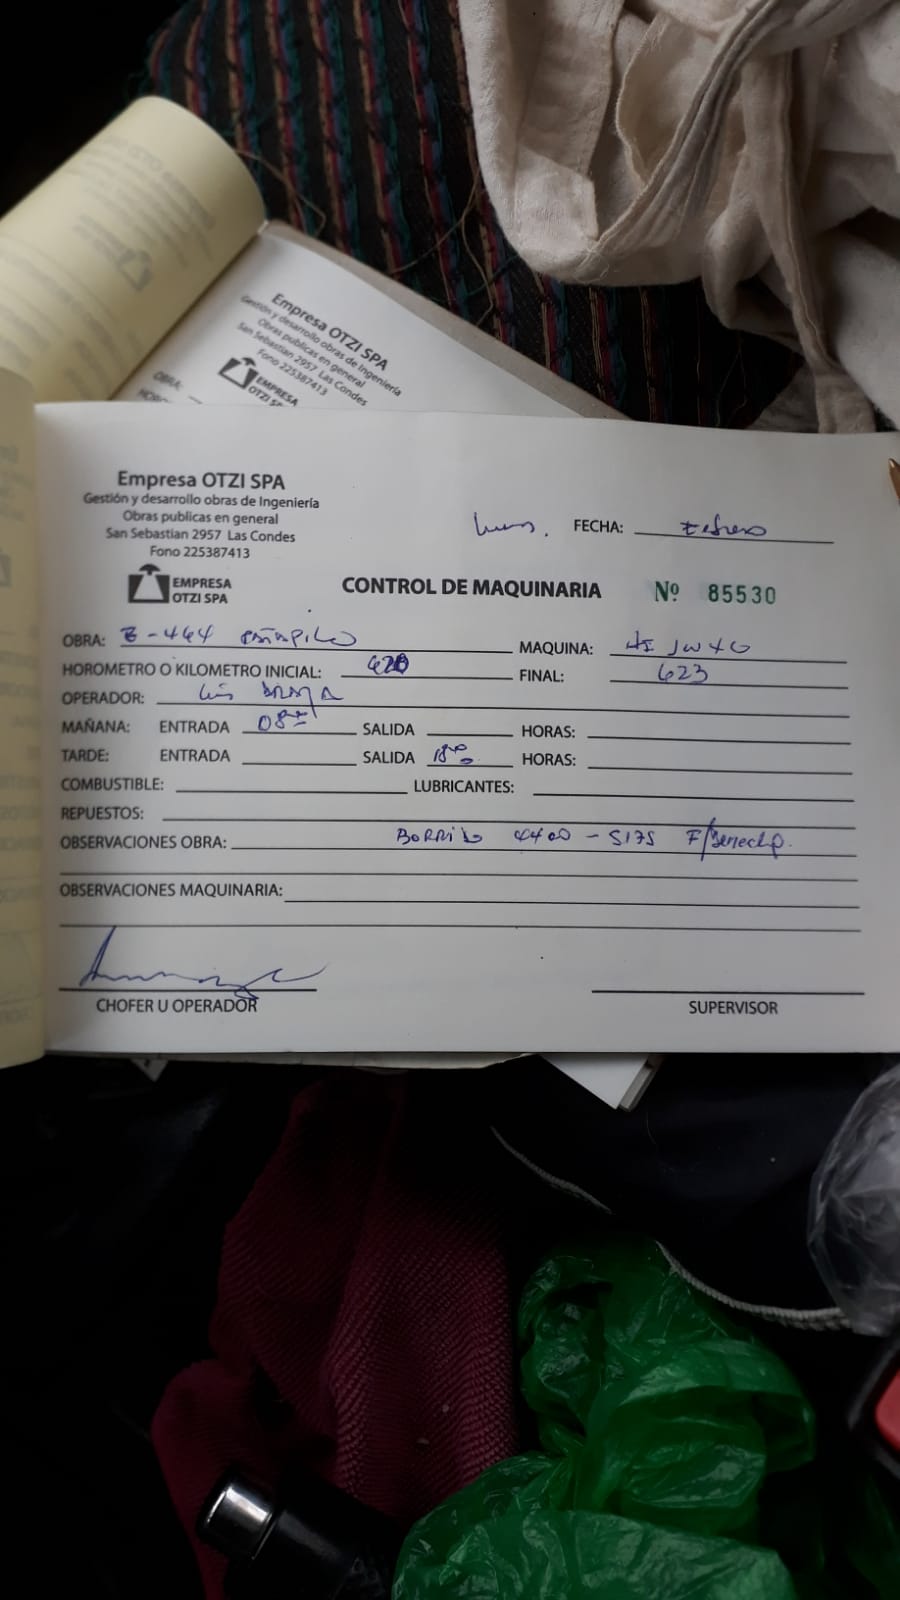 Empresa OTZI SPA
Gestión y desarrollo obras de Ingeniería
Obras publicas en general
San Sebastian 2957 Las Condes
Fono 225387413
EMPRESA
OTZI SPA
OBRA:
Empresa OTZI SPA
Gestión y desarrollo obras de Ingeniería
Obras publicas en general
San Sebastian 2957 Las Condes
Fono 225387413
EMPRESA
OTZI SPA
FECHA:
CONTROL DE MAQUINARIA Nº 85530
OBRA: MAQUINA:
HOROMETRO O KILOMETRO INICIAL: 620 FINAL: 623
OPERADOR: Luis
MAÑANA: ENTRADA 08 SALIDA HORAS:
TARDE: ENTRADA SALIDA 18 HORAS:
COMBUSTIBLE: LUBRICANTES:
REPUESTOS:
OBSERVACIONES OBRA: 4400 - 5175
OBSERVACIONES MAQUINARIA:
CHOFER U OPERADOR SUPERVISOR